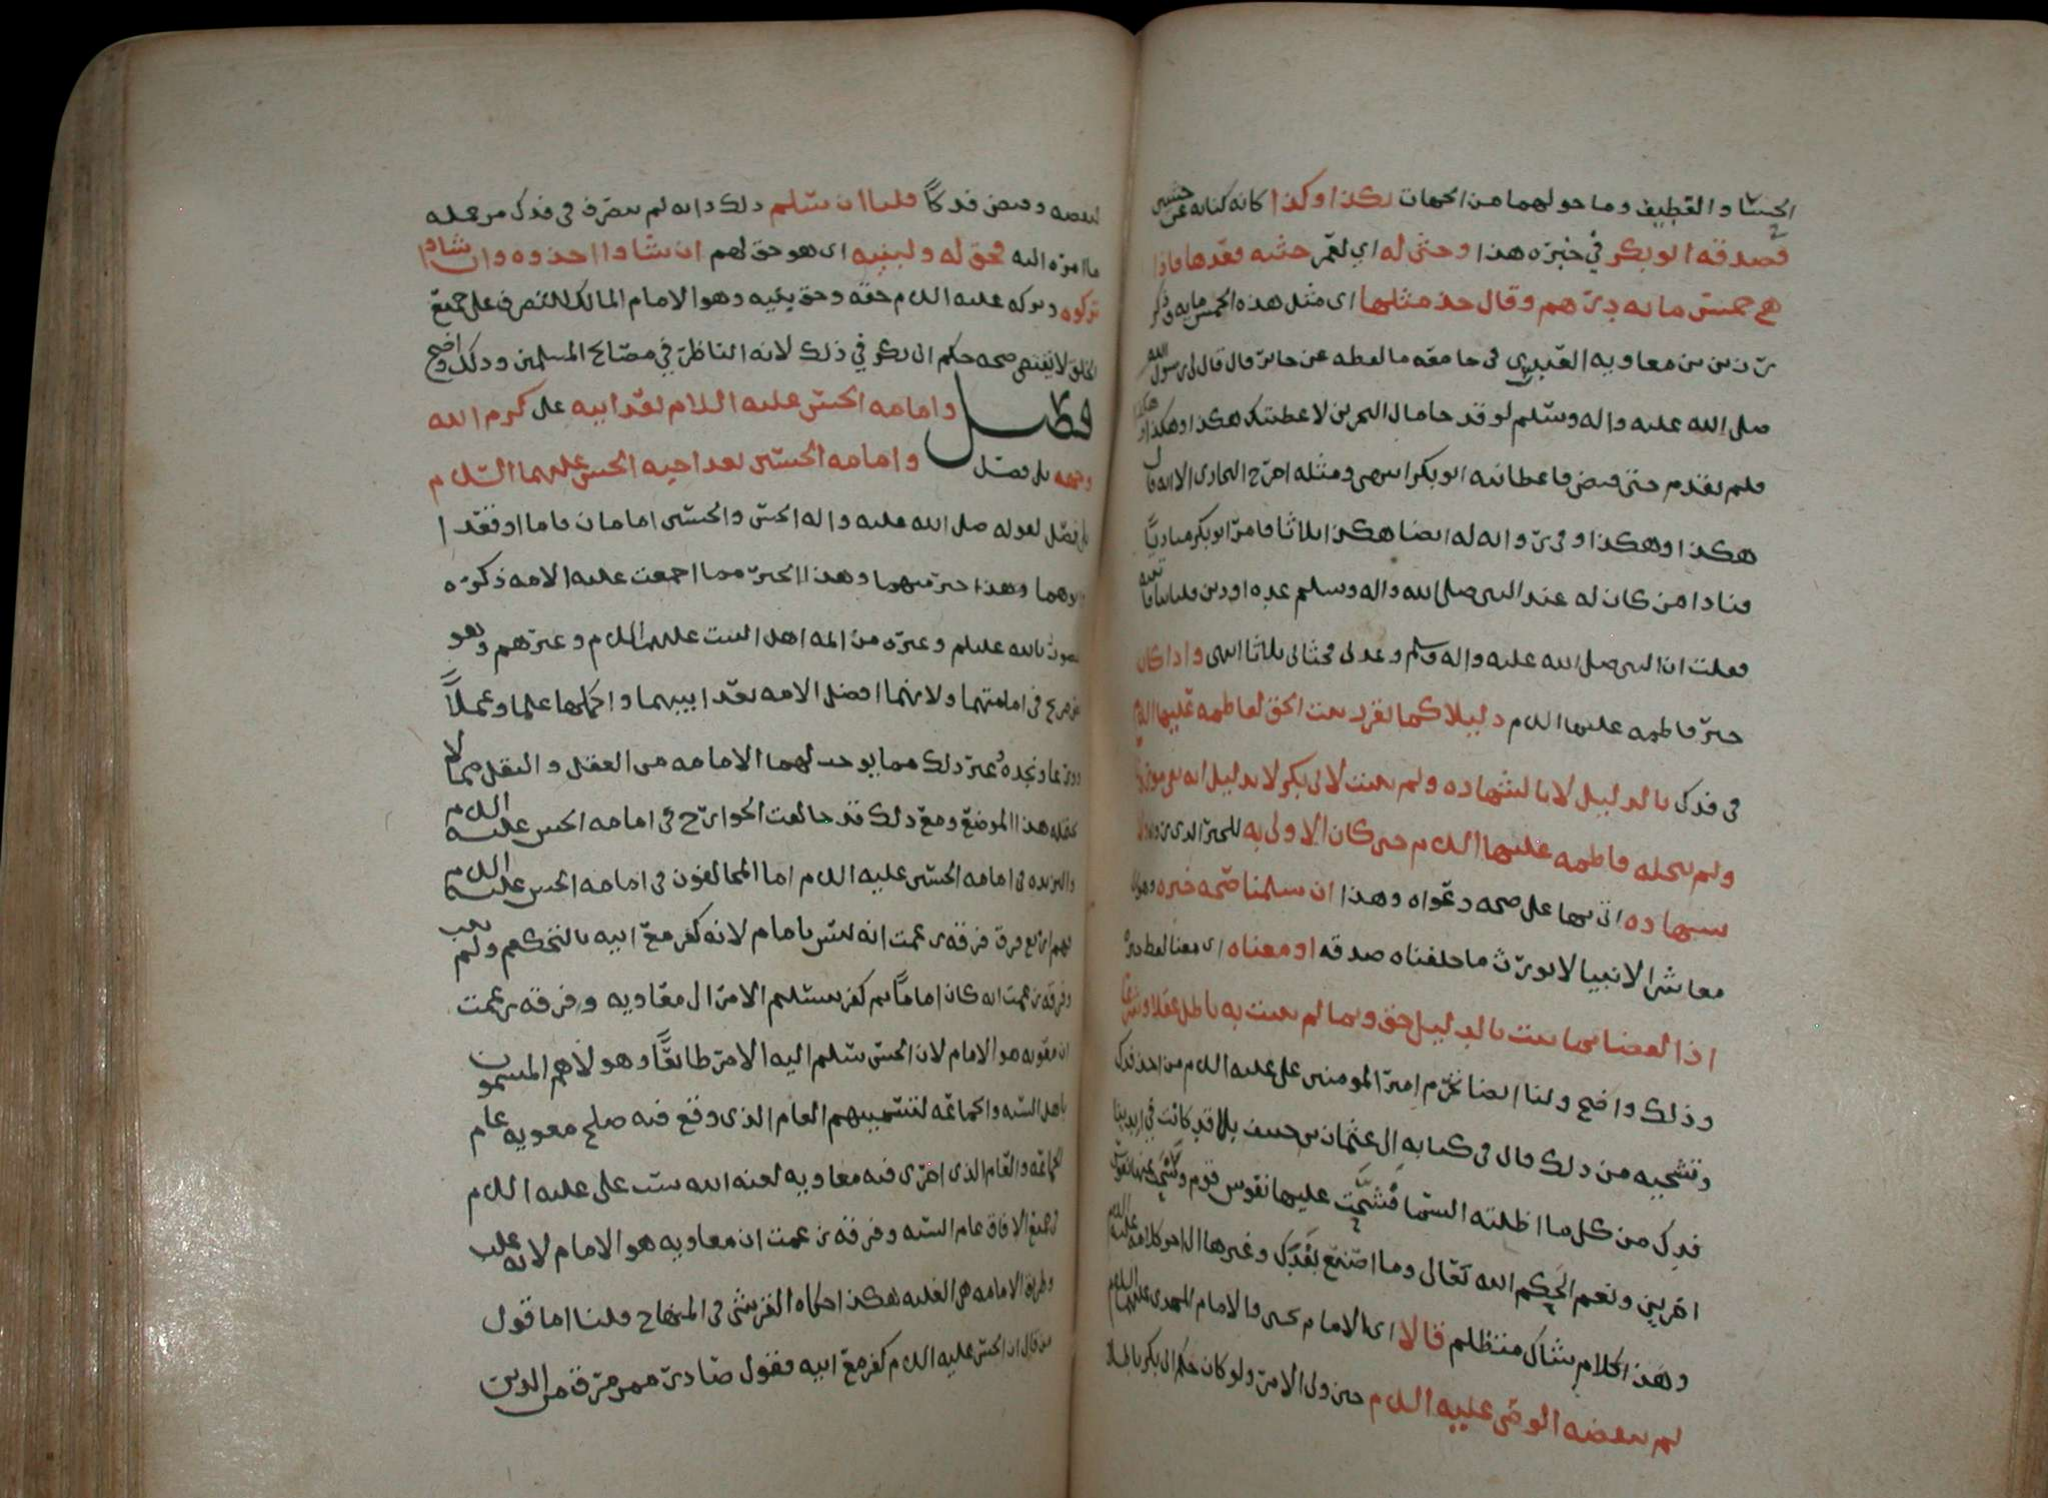 الحسا والقطيف وما حولهما من الجهات بكذا وكذا كانه كنايه عن حثيتين
فصدقه ابو بكر في خبره هذا وحثى له اي لعمر حثيه فعدها فاذا
هي خمس مايه درهم وقال خذ مثلها اى مثل هذه الخمس مايه وذكر
رزين بن معاويه العبدري في جامعه ما لفظه عن جابر قال قال لى رسول الله
صلى الله عليه واله وسلم لو قد جا مال البحرين لاعطيتك هكذا وهكذا وهكذا
فلم يقدم حتى قبض فاعطانيه ابو بكر انتهى ومثله اخرج البخارى الا انه قال
هكذا وهكذا وفي روايه له ايضا هكذا ثلاثا فامر ابو بكر مناديا
فنادا من كان له عند النبي صلى الله واله وسلم عده او دين فلياتنا فاتيته
فقلت ان النبي صلى الله عليه واله وسلم وعدني فحثا لى ثلاثا انتهى واذا كان
خبر فاطمه عليها السلام دليلا كما تقرر ثبت الحق لفاطمه عليها السلام
في فدك بالدليل لا بالشهاده ولم يثبت لابى بكر لا بدليل انه
ولم يحله فاطمه عليها السلام حتى كان الاولى به للخبر الذي
شهاده اثنيهما على صحه دعواه وهذا ان سلمنا صحه خبره وهو
معاشر الانبيا لا نورث ما خلفناه صدقه او معناه اى معنا لفظ خبره
اذ القضا بما يثبت بالدليل حق وبما لم يثبت به باطل عقلا وشرعا
وذلك واضح ولنا ايضا تحرم امير المومنين على عليه السلام من اخذ فدك
وتشجيه من ذلك قال في كتابه الى عثمان بن حنيف بلا قد كانت في ايدينا
فدك من كل ما اظلته السما فشحت عليها نفوس قوم وسخت عنها نفوس
اخرين ونعم الحكم الله تعالى وما اصنع بفدك وغيرها الى اخر كلامه عليه السلم
وهذا كلام شاك متظلم قالا اى الامام يحيى والامام المهدى عليهما السلام
لم ينقضه الوصى عليه السلام حين ولى الامر ولو كان حكم ابى بكر باطلا
لنقضه وقبض فدكا قلنا ان سلم ذلك وانه لم يتصرف في فدك من جعله
ما امره اليه فحق له ولبنيه اى هو حق لهم ان شاوا اخذوه وان شاوا
تركوه وتركه عليه السلام حقه وحق بنيه وهو الامام المالك للتصرف على جميع
الخلق لا يقتضي صحه حكم ابى بكر في ذلك لانه الناظر في مصالح المسلمين وذلك واضح
فصل وامامه الحسن عليه السلام بعد ابيه على كرم الله
وجهه بلا فصل وامامه الحسين بعد اخيه الحسن عليهما السلام
بلا فصل لقوله صلى الله عليه واله الحسن والحسين امامان قاما او قعدا
وابوهما وهذا خير منهما وهذا الخبر مما اجمعت عليه الامه ذكره
المنصور بالله عليلم وغيره من ائمه اهل البيت عليهم السلام وغيرهم وهو
نص صريح في امامتهما ولانهما افضل الامه بعد ابيهما واكملها علما وعملا
وورعا ونجده وغير ذلك مما يوجب لهما الامامه من العقل والنقل مما لا
يحتمله هذا الموضع ومع ذلك قد خالفت الخوارج في امامه الحسن عليه السلام
واليزيديه في امامه الحسين عليه السلام اما المخالفون في امامه الحسن عليه السلام
فهم اربع فرق فرقه زعمت انه ليس بامام لانه كفر مع ابيه بالتحكيم ولم يتب
وفرقه زعمت انه كان اماما ثم كفر بتسليم الامر الى معاويه وفرقه زعمت
ان معويه هو الامام لان الحسن سلم اليه الامر طائعا وهولاهم المسمون
باهل السنه والجماعه لتسميتهم العام الذى وقع فيه صلح معويه عام
الجماعه والعام الذى اجرى فيه معاويه لعنه الله سب على عليه السلام
في جميع الافاق عام السنه وفرقه زعمت ان معاويه هو الامام لانه غلب
وطريق الامامه هي الغلبه هكذا حكاه القرشي في المنهاج قلنا اما قول
من قال ان الحسن عليه السلام كفر مع ابيه فقول صادر ممن مرق من الدين